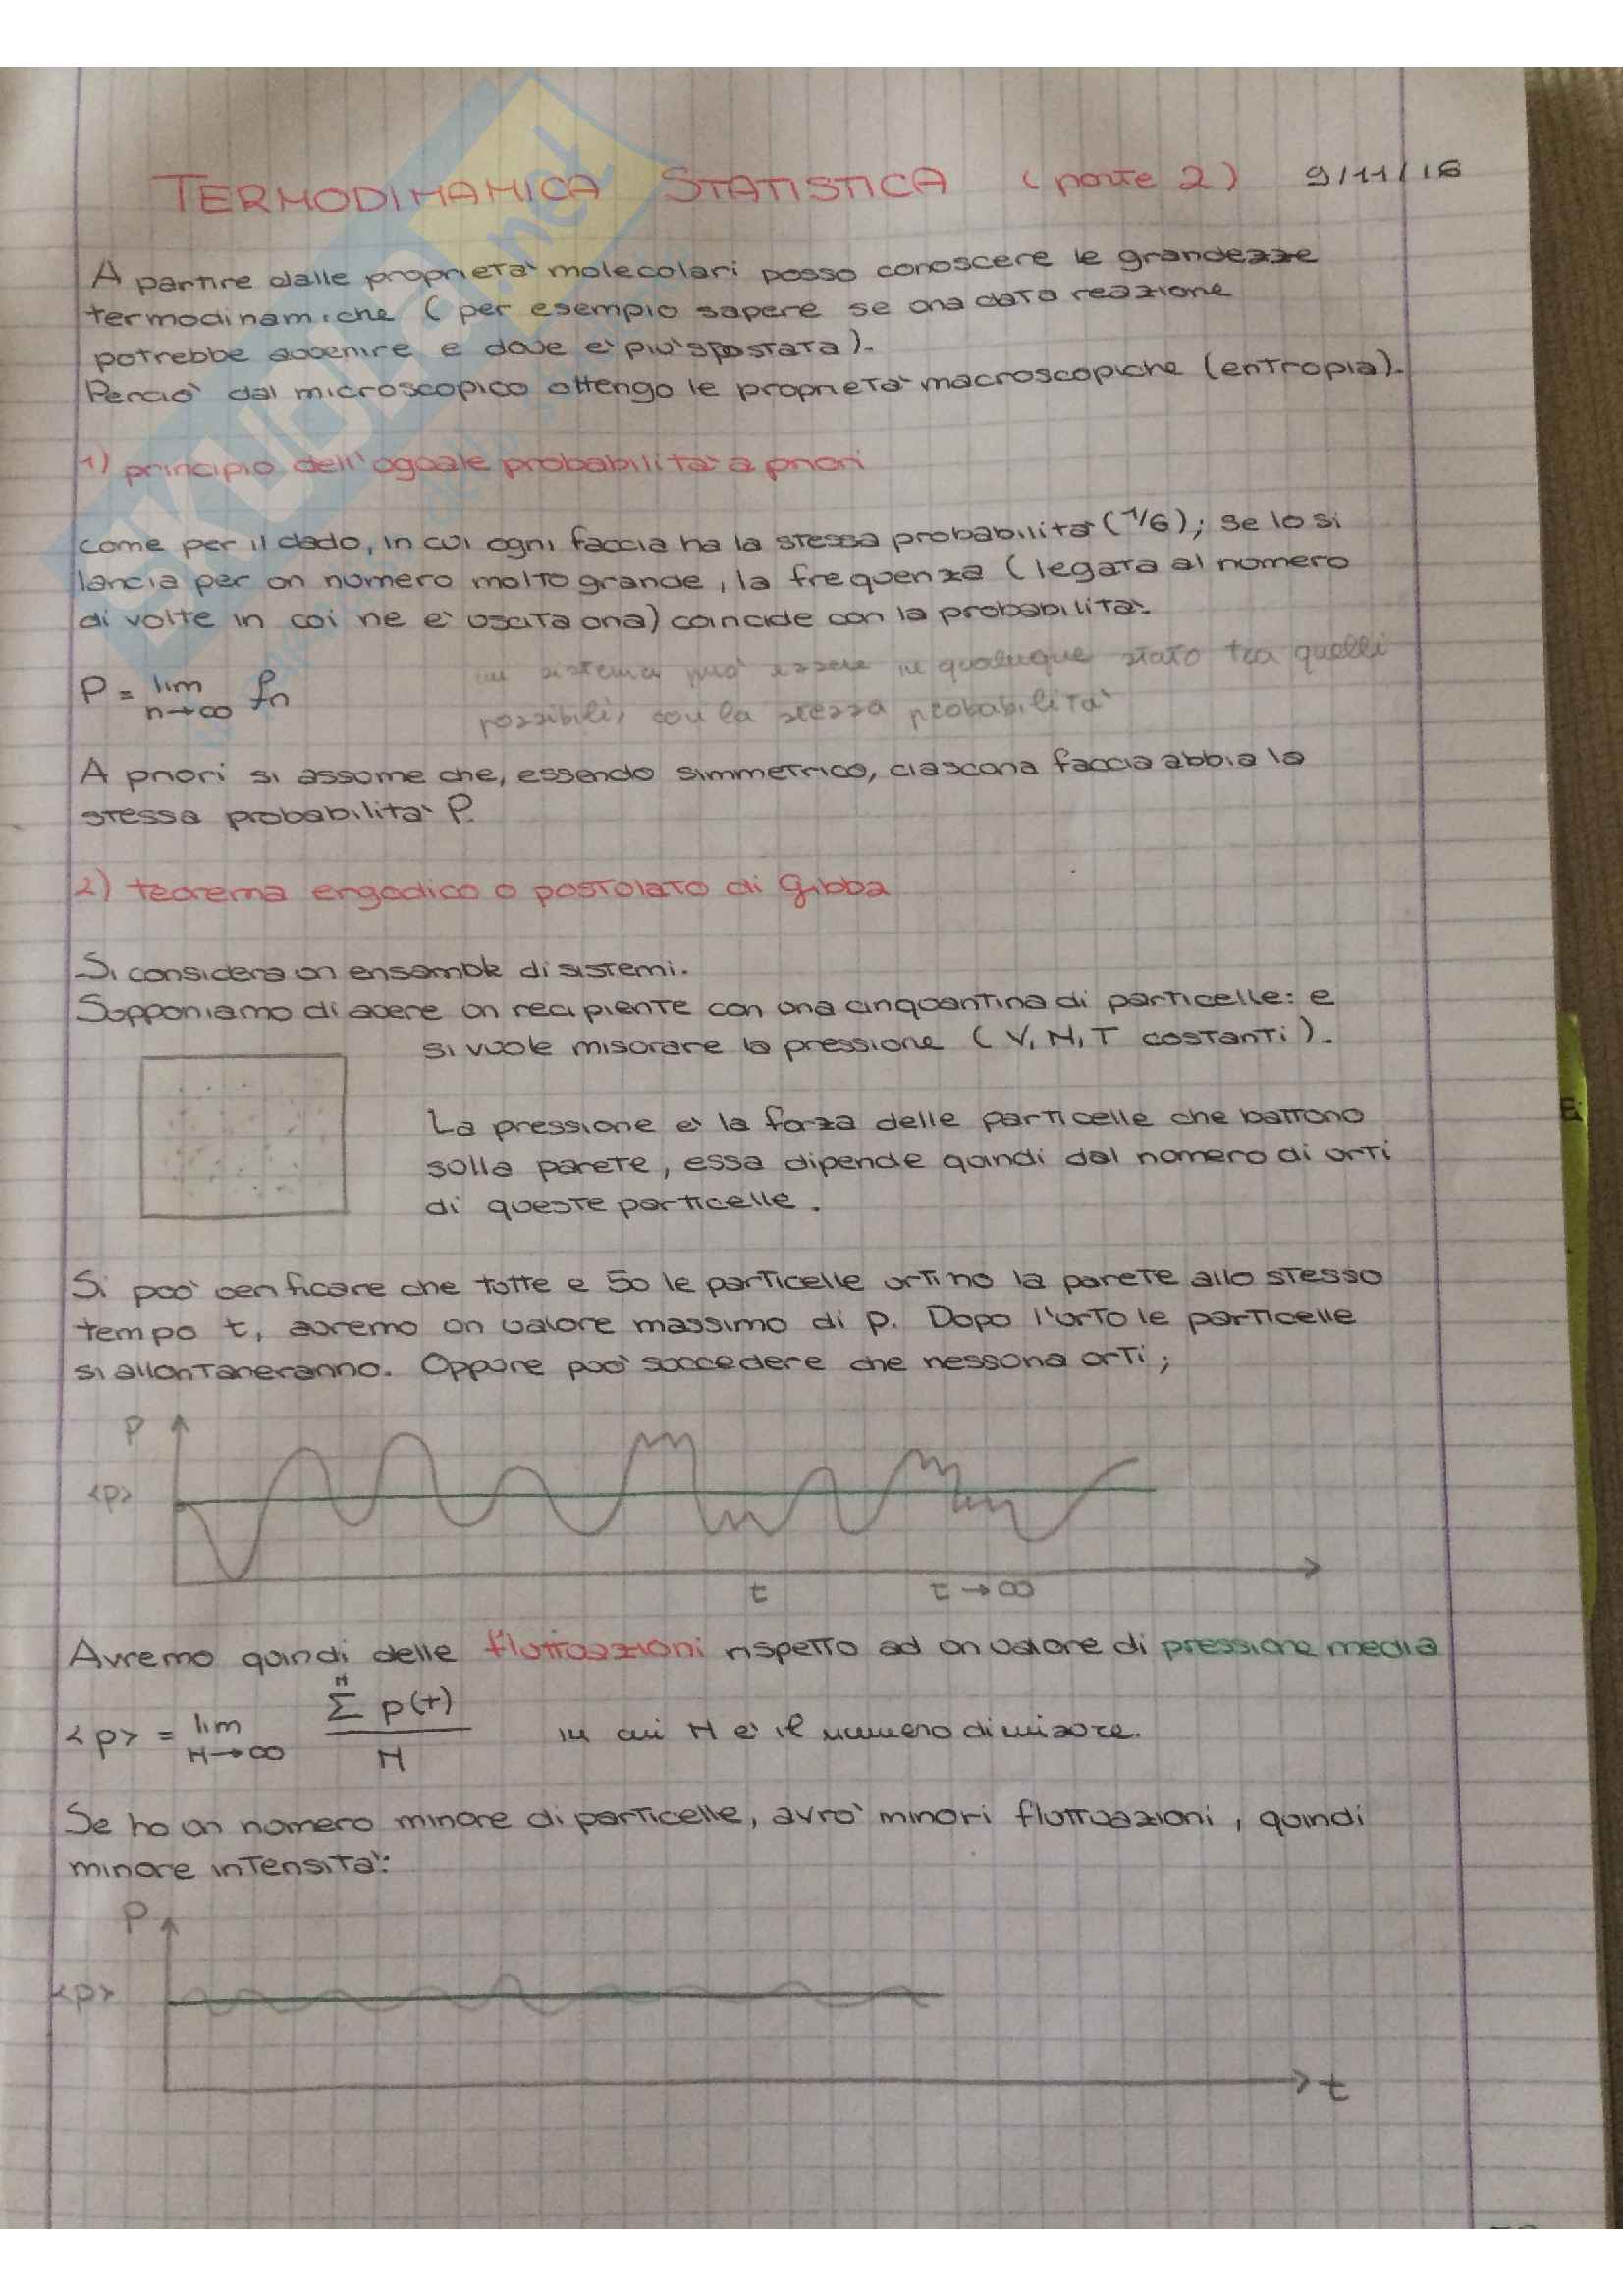 TERMODINAMICA STATISTICA (parte 2) 9/11/16
A partire dalle proprietà molecolari posso conoscere le grandezze
termodinamiche (per esempio sapere se una data reazione
potrebbe avvenire e dove è più spostata).
Perciò dal microscopico ottengo le proprietà macroscopiche (entropia).
1) principio dell'uguale probabilità a priori
come per il dado, in cui ogni faccia ha la stessa probabilità (1/6); se lo si
lancia per un numero molto grande, la frequenza (legata al numero
di volte in cui ne è uscita una) coincide con la probabilità:
un sistema può essere in qualunque stato tra quelli
P = lim n→∞ fn
possibili, con la stessa probabilità
A priori si assume che, essendo simmetrico, ciascuna faccia abbia la
stessa probabilità P.
2) teorema ergodico o postulato di Gibbs
Si considera un ensamble di sistemi.
Supponiamo di avere un recipiente con una cinquantina di particelle: e
si vuole misurare la pressione (V, N, T costanti).
La pressione è la forza delle particelle che battono
sulla parete, essa dipende quindi dal numero di urti
di queste particelle.
Si può verificare che tutte e 50 le particelle urtino la parete allo stesso
tempo t, avremo un valore massimo di p. Dopo l'urto le particelle
si allontaneranno. Oppure può succedere che nessuna urti;
P
<p>
t t→∞
Avremo quindi delle fluttuazioni rispetto ad un valore di pressione media
<p> = lim N→∞ Σ^N p(t) / N in cui N è il numero di misure.
Se ho un numero minore di particelle, avrò minori fluttuazioni, quindi
minore intensità:
P
<p>
t
SKUOLA.net